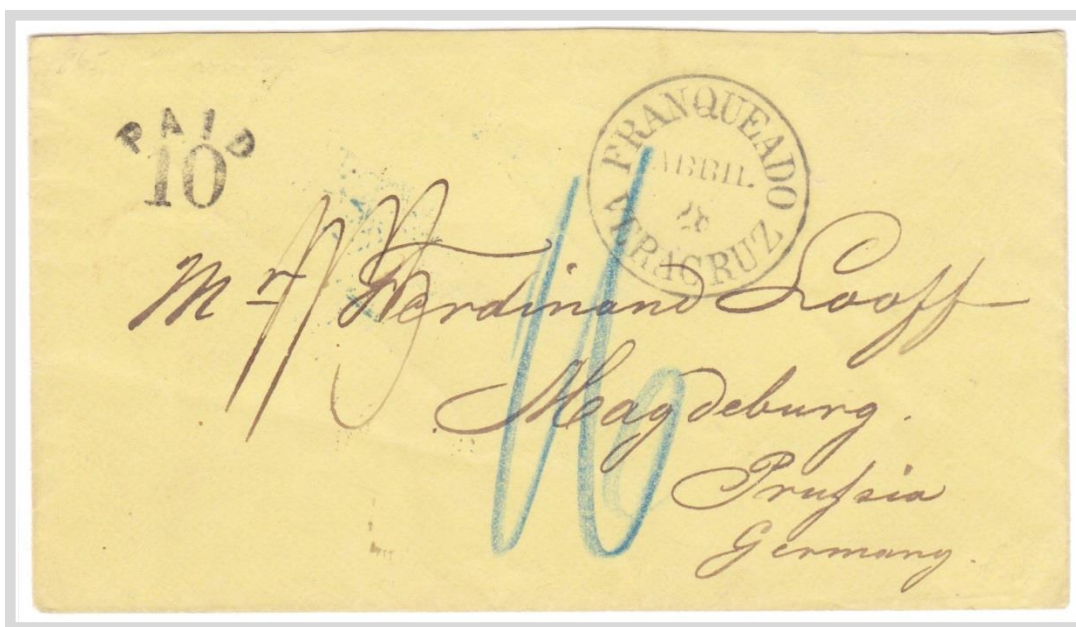 PAID
10
FRANQUEADO
ABRIL
28
VERACRUZ
Mr. Ferdinand Looff
Magdeburg.
Prufsia
Germany.